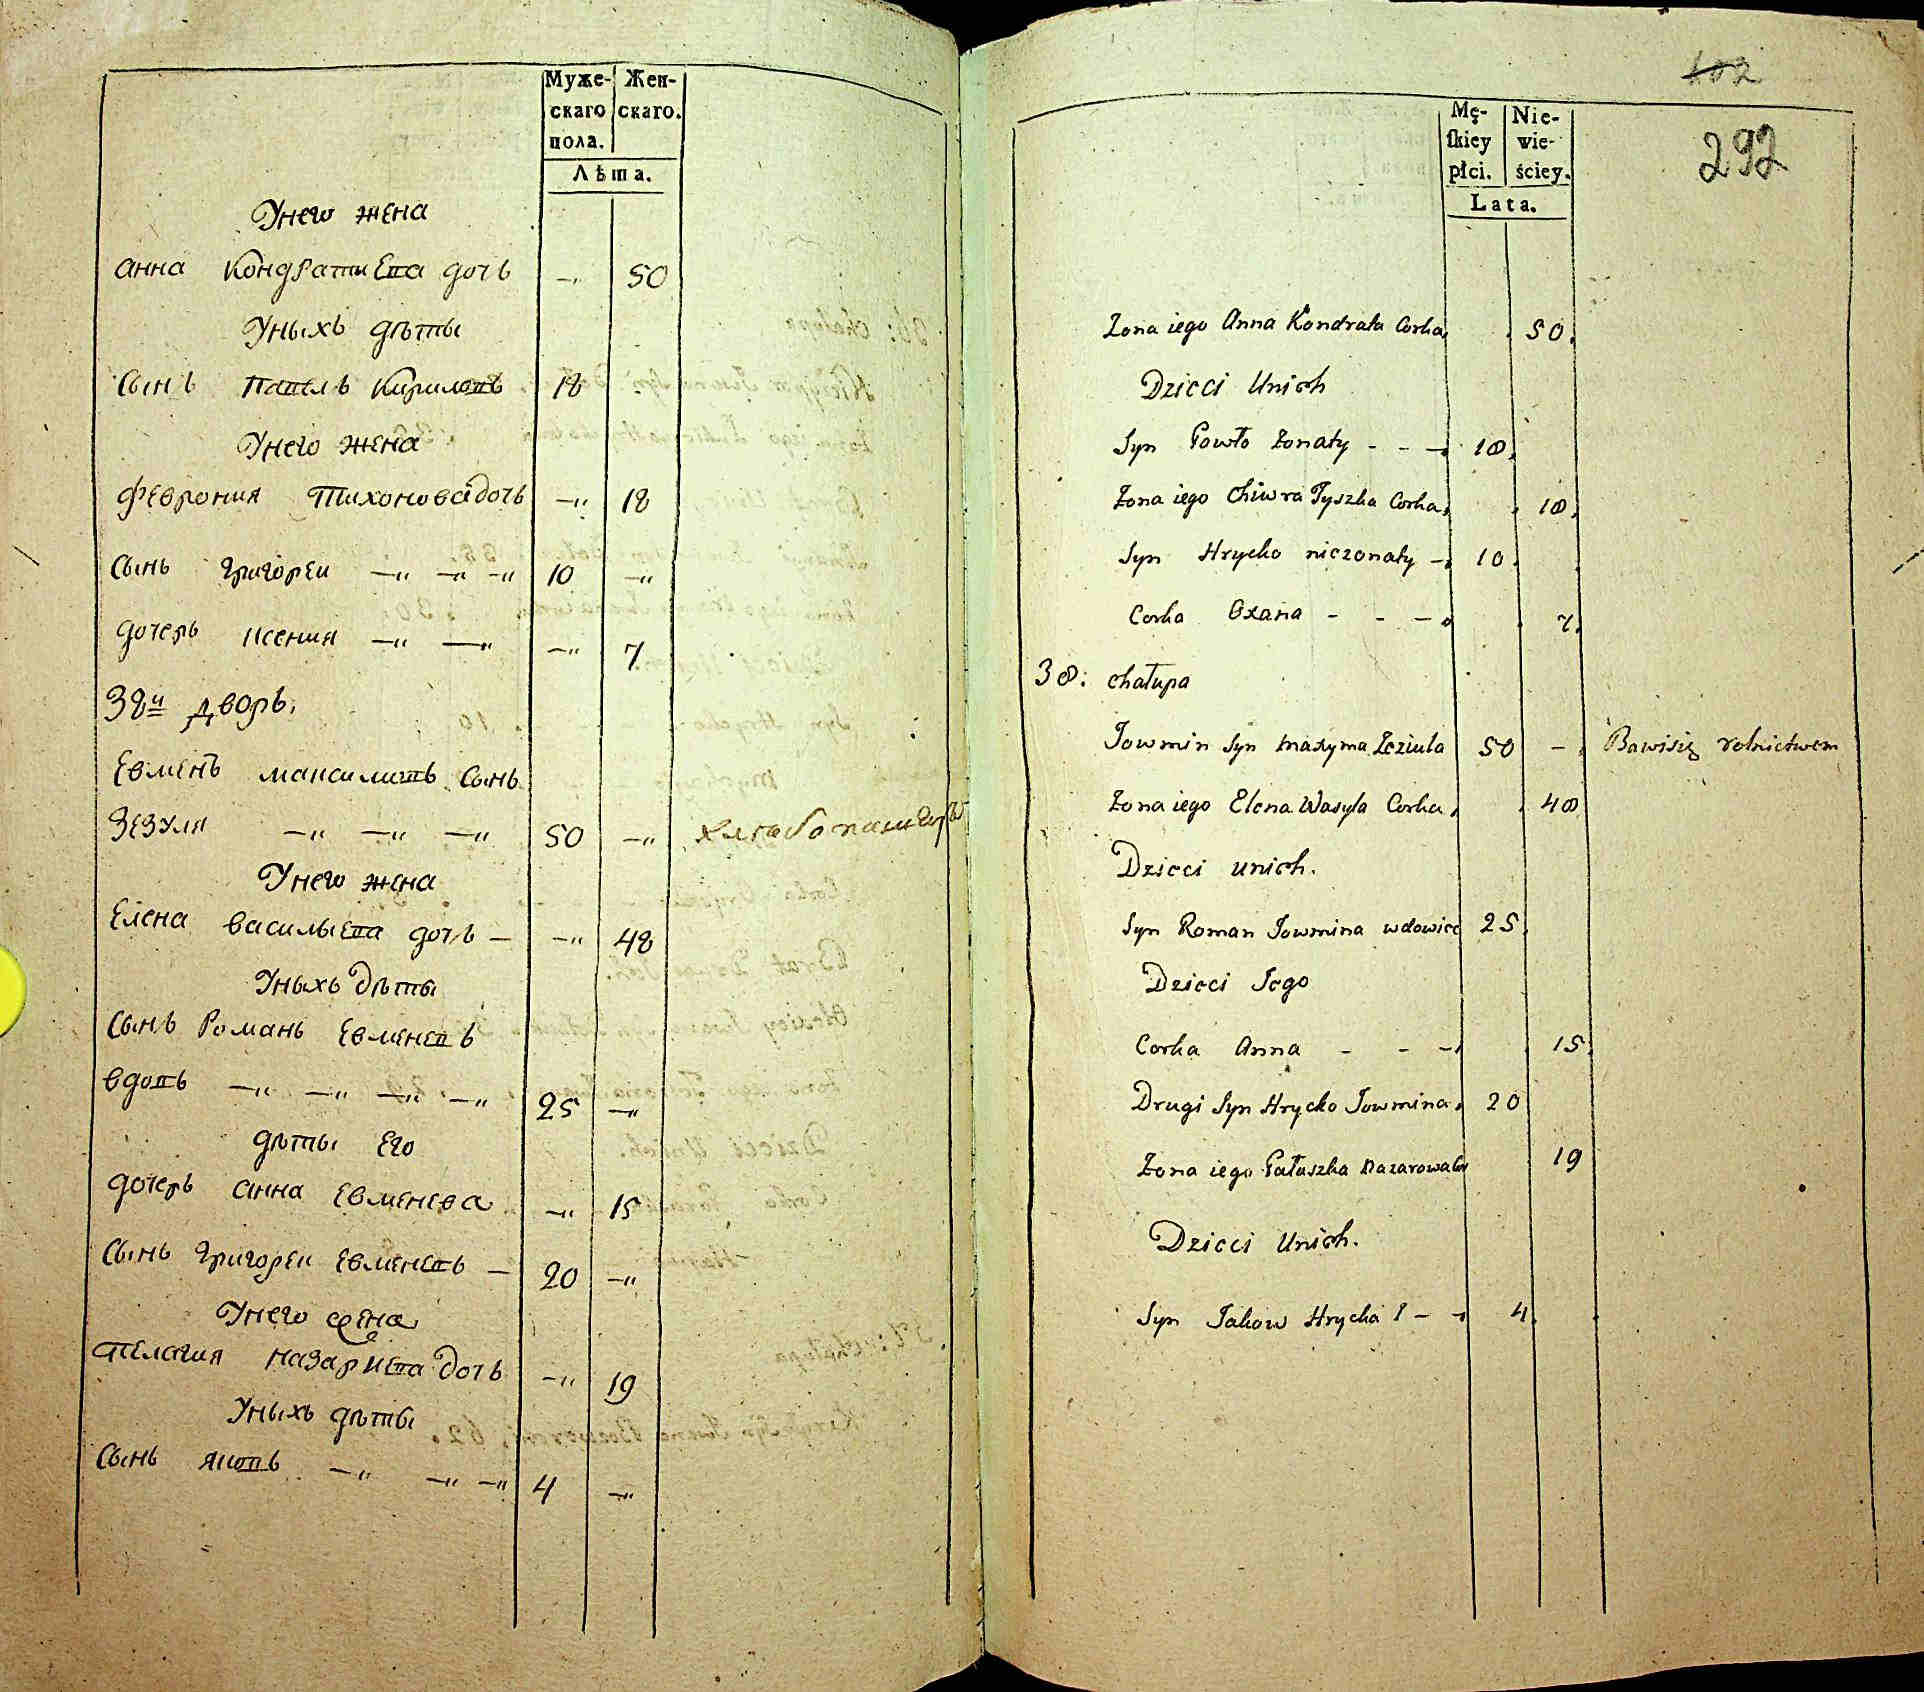 Муже-
скаго
пола.
Жен-
скаго.
Лѣта.
Унего жена
анна Кондратиева дочь -„ 50
Уныхъ дѣты
Сынъ Павелъ Кириловъ 18
Унего жена
Феврония Тихонова дочь -„ 18
Сынъ Григореи -„ -„ -„ 10 -„
дочерь ксения -„ -„ -„ 7
38й дворъ.
Евменъ максимовъ Сынъ
Зезуля -„ -„ -„ 50 -„ хлѣбопашецъ
Унего жена
Елена васильева дочь - -„ 48
Уныхъ дѣты
Сынъ Романъ Евменевъ
вдовъ -„ -„ -„ -„ 25 -„
дѣты Его
дочерь анна Евменева -„ 15
Сынъ Григореи Евменевъ - 20 -„
Унего жена
Пелагия назариева дочь -„ 19
Уныхъ дѣты
Сынъ яковъ -„ -„ -„ 4 -„
102
292
Mę-
skiey
płci.
Nie-
wie-
ściey.
Lata.
Zona iego Anna Kondrata Corka 50.
Dzieci Unich
Syn Pawło Zonaty - - - 18.
Zona iego Chiwra Tyszka Corka 18.
Syn Hrycko niezonaty - 10.
Corka Oxana - - - 7.
38. chałupa
Jowmin Syn maxyma Zeziula 50 - Bawisię rolnictwem
Zona iego Elena Wasyla Corka 48
Dzieci unich.
Syn Roman Jowmina wdowiec 25.
Dzieci Jego
Corka Anna - - - 15.
Drugi Syn Hrycko Jowmina 20
Zona iego Pałaszka Nazarowa 19
Dzieci Unich.
Syn Jakow Hrycka - - 4.